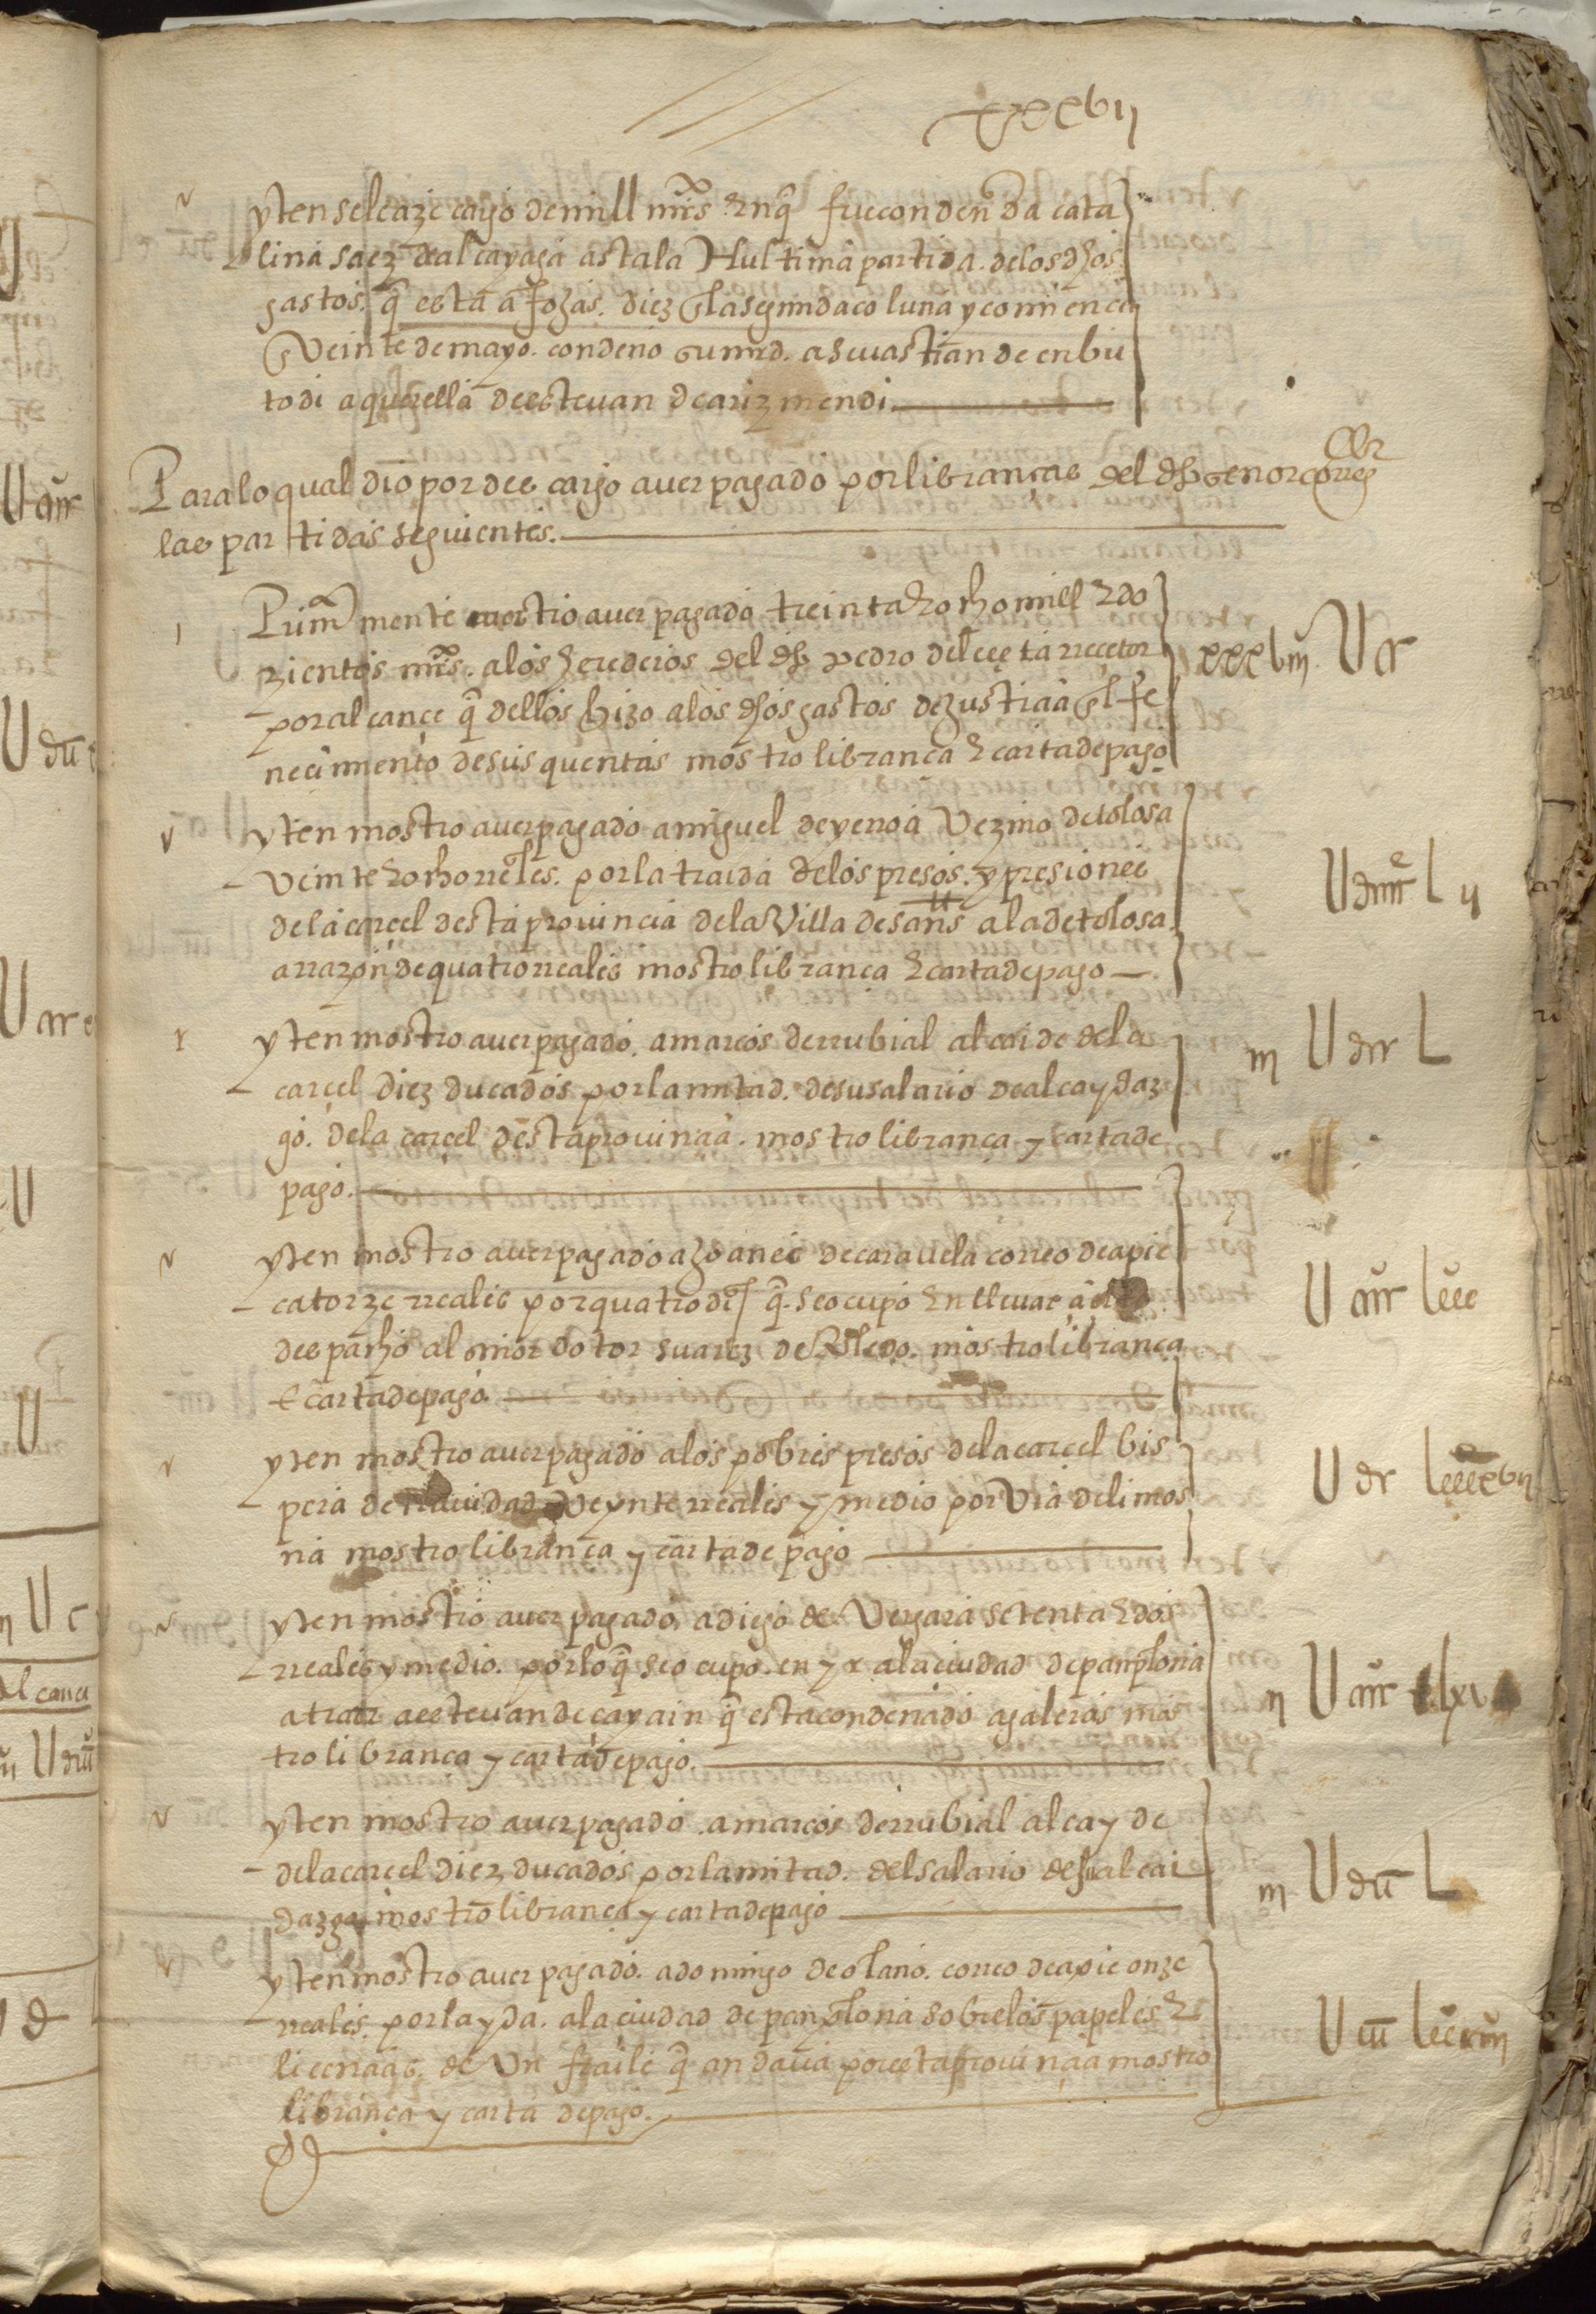 xxxbij
yten se le aze cargo de mill mrs en q̃ fue condenada cata
lina saez de alcayaga asta la Hultima partida de los dhos
gastos q̃ esta a fojas diez en la segunda coluna y comiença
en Veinte de mayo condeno su mrd a seuastian de enbu
todi a querella de esteuan de arizmendi
Para lo qual dio por descargo auer pagado por libranças del dho señor correg
las partidas seguientes
Primamente mostro auer pagado treinta y ocho mill y do
zientos mrs a los herederos del dho pedro del rreçetor
por alcançe q̃ dellos hizo a los dhos gastos de justiçia en el fe
neçimiento de sus quentas mostro librança e carta de pago
xxxbiii U cc
yten mostro auer pagado a miguel de yeroa Vezino de tolosa
Veinte y ocho rreales por la traida de los presos y presiones
de la carçel desta prouinçia de la Villa de sans a la de tolosa
a rrazon de quatro reales mostro librança e carta de pago
U dcccc L ij
yten mostro auer pagado a marcos de rrubial alcaide de la
carçel diez ducados por la mitad de su salario de alcaydaz
go de la carçel desta prouinçia mostro librança y carta de
pago
iii U dcc L
yten mostro auer pagado a joanes de carauela correo de a pie
catorze rreales por quatro dias q̃ se ocupo en lleuar
despacho al señor dotor suarez de toledo mostro librança
e carta de pago
U cccc lxx
yten mostro auer pagado a los pobres presos de la carçel bis
pera de nauidad veynte rreales y medio por Via de limos
na mostro librança y carta de pago
U dc lxxxxbij
yten mostro auer pagado a diego de Vergara setenta y dos
rreales y medio por lo q̃ se ocupo en yr a la çiudad de panplona
a traer a esteuan de cayain q̃ esta condenado a galeras mos
tro librança y carta de pago
ij U cccc lxv
yten mostro auer pagado a marcos de rrubial alcayde
de la carçel diez ducados por la mitad del salario de su alcai
dazgo mostro librança y carta de pago
iii U dcc L
yten mostro auer pagado a domingo de olano correo de a pie onze
rreales por la yda a la çiudad de panplona sobre los papeles y
liçençias de Un fraile q̃ andaua por esta prouinçia mostro
librança y carta de pago
U ccc lxxiiii